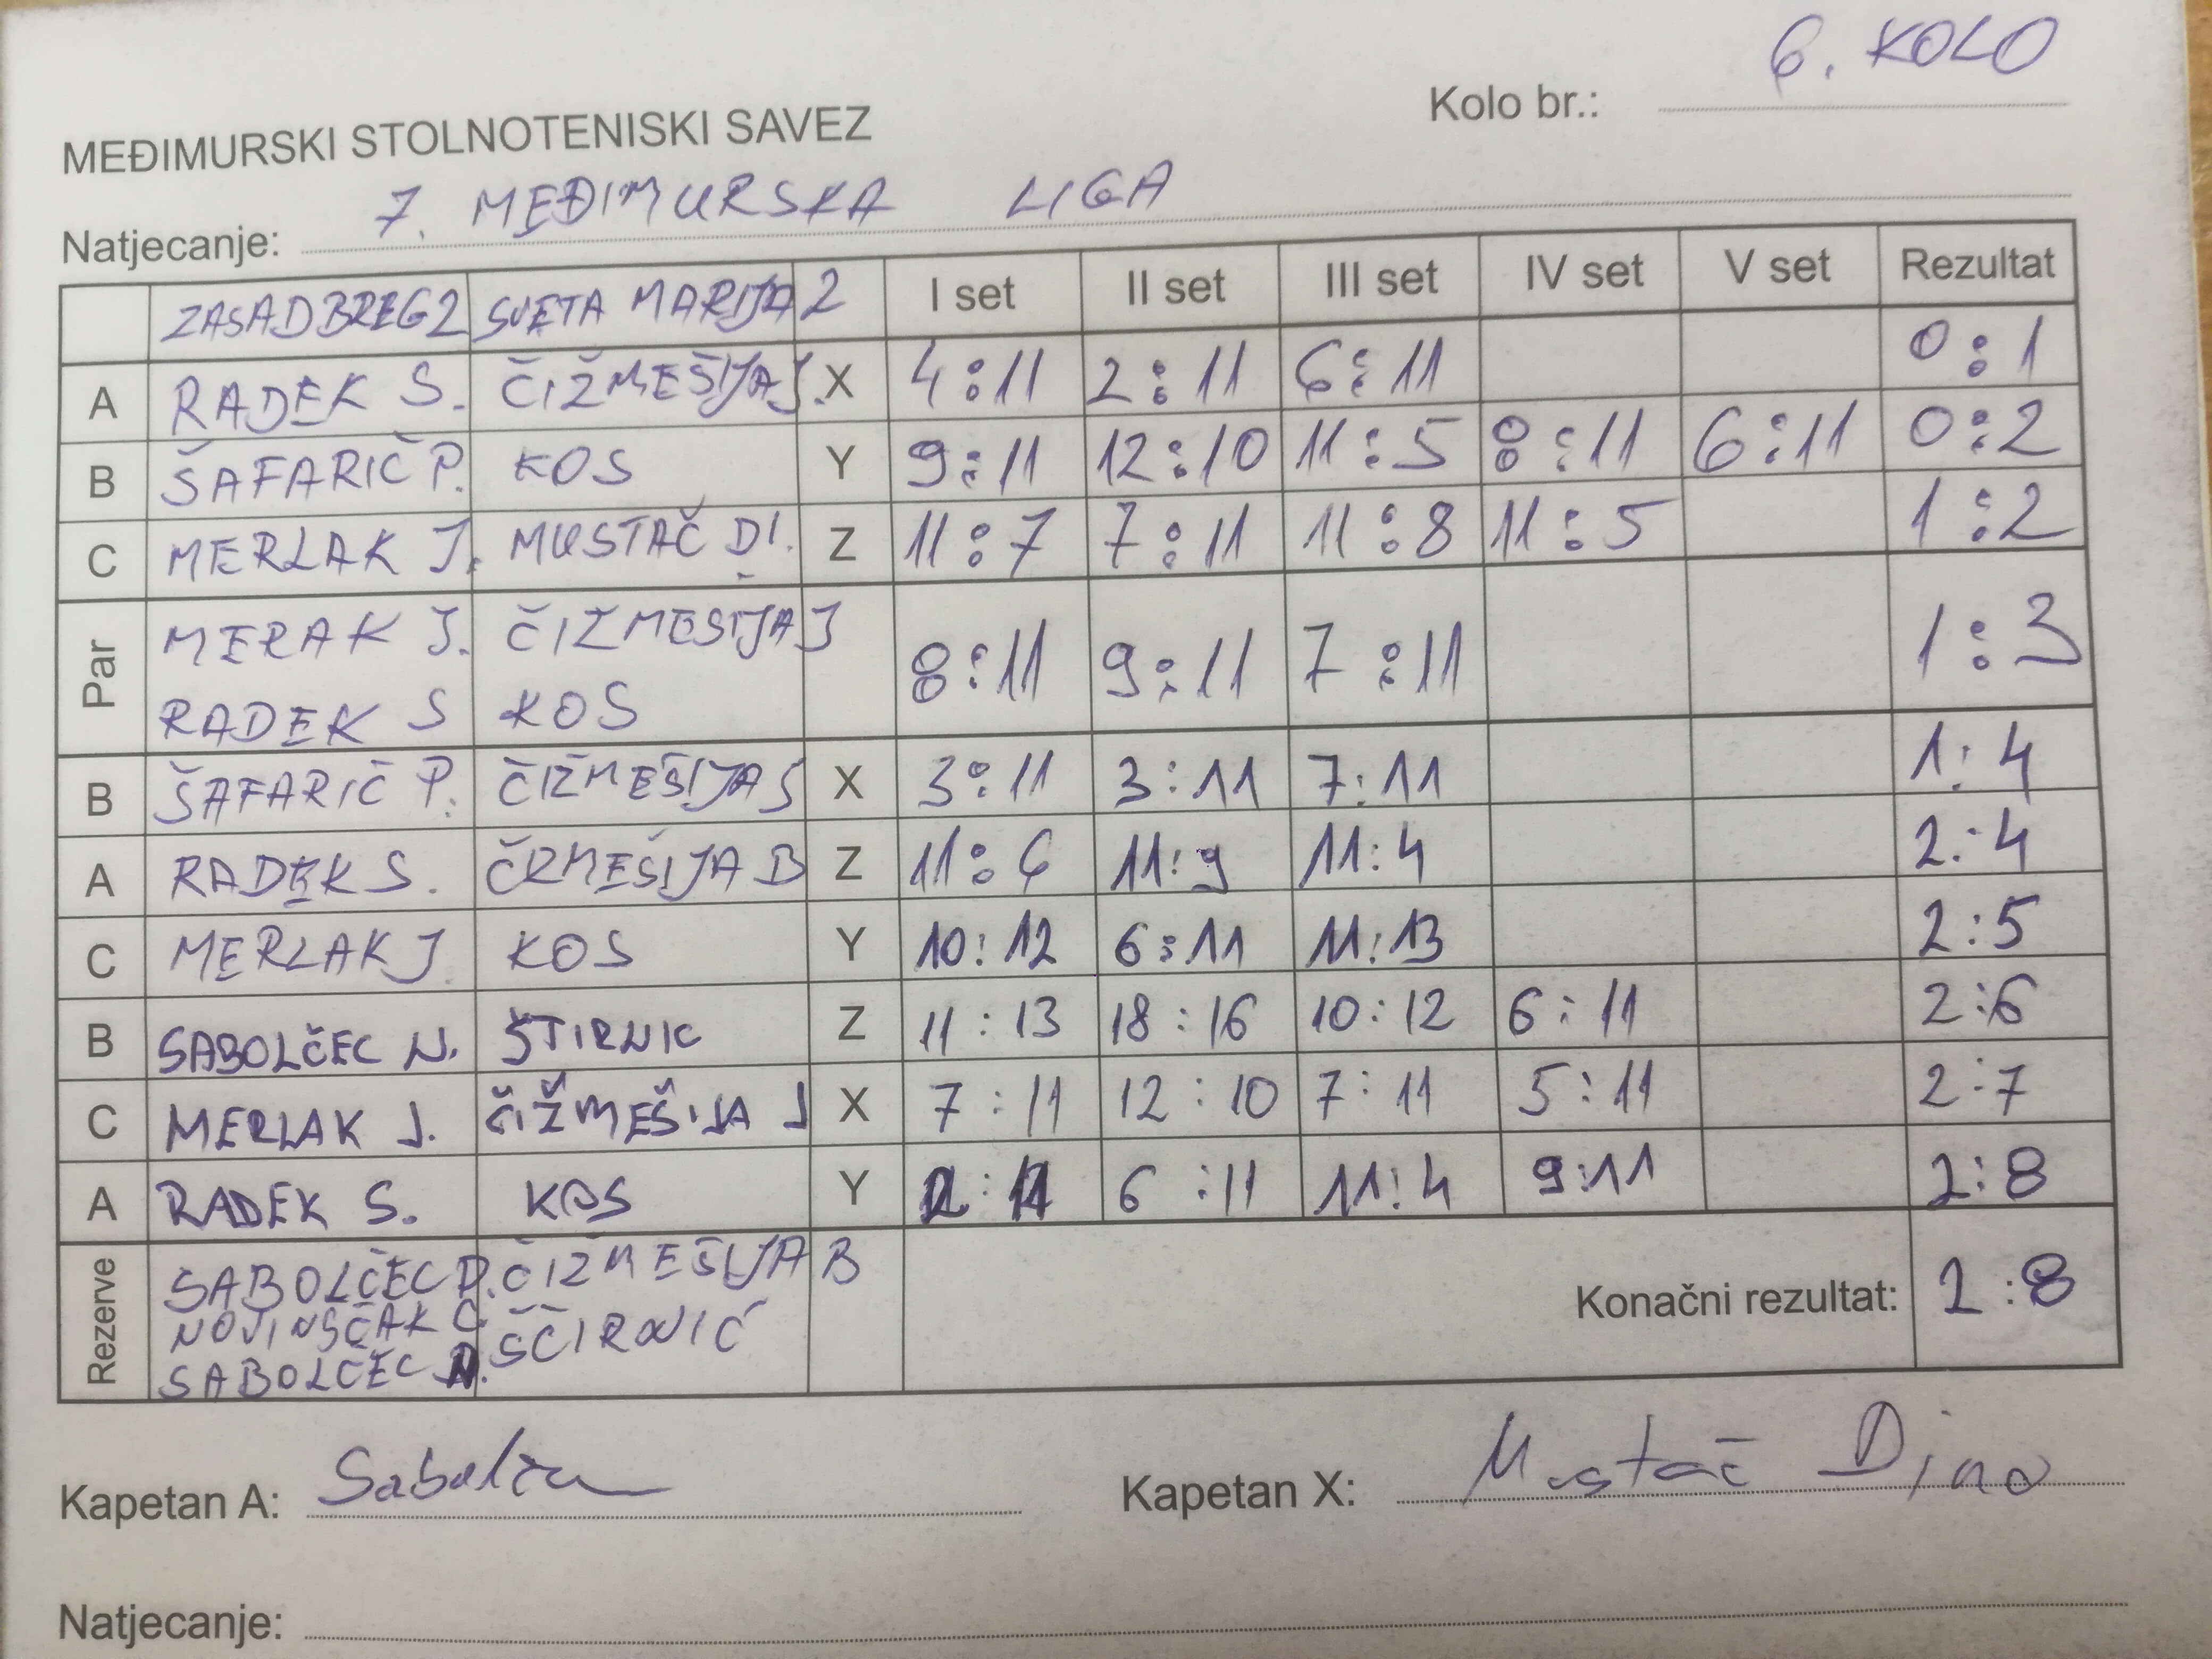 Kolo br.: 6. KOLO
MEĐIMURSKI STOLNOTENISKI SAVEZ
Natjecanje: 7. MEĐIMURSKA LIGA
ZASADBREG2 SVETA MARIJA 2 I set II set III set IV set V set Rezultat
A RADEK S. ČIŽMEŠIJA J. X 4:11 2:11 6:11 0:1
B ŠAFARIČ P. KOS Y 9:11 12:10 11:5 8:11 6:11 0:2
C MERLAK J. MUSTAČ DI. Z 11:7 7:11 11:8 11:5 1:2
Par MERAK J. ČIZMESIJA J 8:11 9:11 7:11 1:3
RADEK S KOS
B ŠAFARIČ P. ČIŽMEŠIJA J X 3:11 3:11 7:11 1:4
A RADEK S. ČRMEŠIJA B Z 11:6 11:9 11:4 2:4
C MERLAK J KOS Y 10:12 6:11 11:13 2:5
B SABOLČEC N. ŠTIRNIC Z 11:13 18:16 10:12 6:11 2:6
C MERLAK J. ČIŽMEŠIJA J X 7:11 12:10 7:11 5:11 2:7
A RADEK S. KOS Y 6:11 11:4 9:11 2:8
Rezerve SABOLČEC D. ČIŽMEŠIJA B
NOVINŠČAK C ŠČIRNIĆ
SABOLČEC N.
Konačni rezultat: 2:8
Kapetan A: Kapetan X: Mustač Dino
Natjecanje: